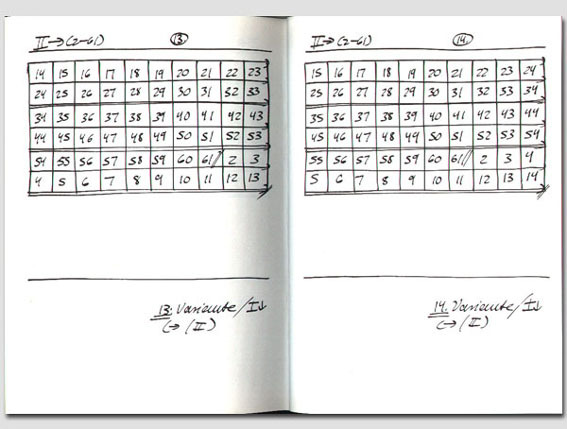 II→(2-61) 13.
14 15 16 17 18 19 20 21 22 23
24 25 26 27 28 29 30 31 32 33
34 35 36 37 38 39 40 41 42 43
44 45 46 47 48 49 50 51 52 53
54 55 56 57 58 59 60 61// 2 3
4 5 6 7 8 9 10 11 12 13
13. Variante/I↓
(→/II)
II→(2-61) 14.
15 16 17 18 19 20 21 22 23 24
25 26 27 28 29 30 31 32 33 34
35 36 37 38 39 40 41 42 43 44
45 46 47 48 49 50 51 52 53 54
55 56 57 58 59 60 61// 2 3 4
5 6 7 8 9 10 11 12 13 14
14. Variante/I↓
(→/II)